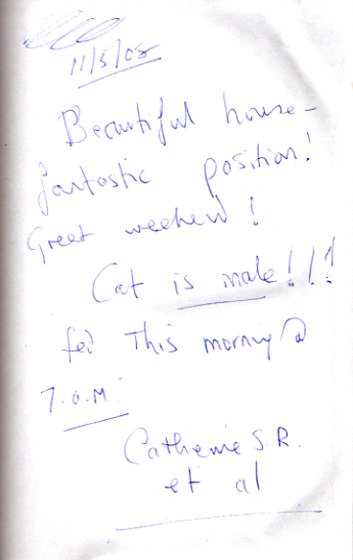 11/5/08
Beautiful house -
fantastic position!
Great weekend!
Cat is male!!!
fed This morning @
7.a.M.
Catherine S.R.
et al